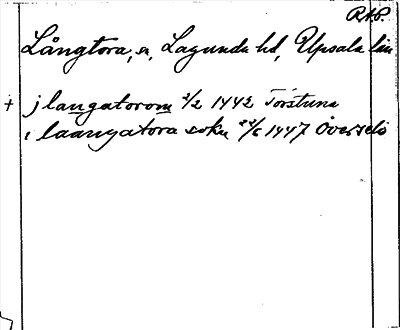 RAP.
Långtora, sn, Lagunda hd, Uppsala län
+ j langatorom 2/2 1442 Torstuna
i laangatora sokn 22/6 1447 Överselö